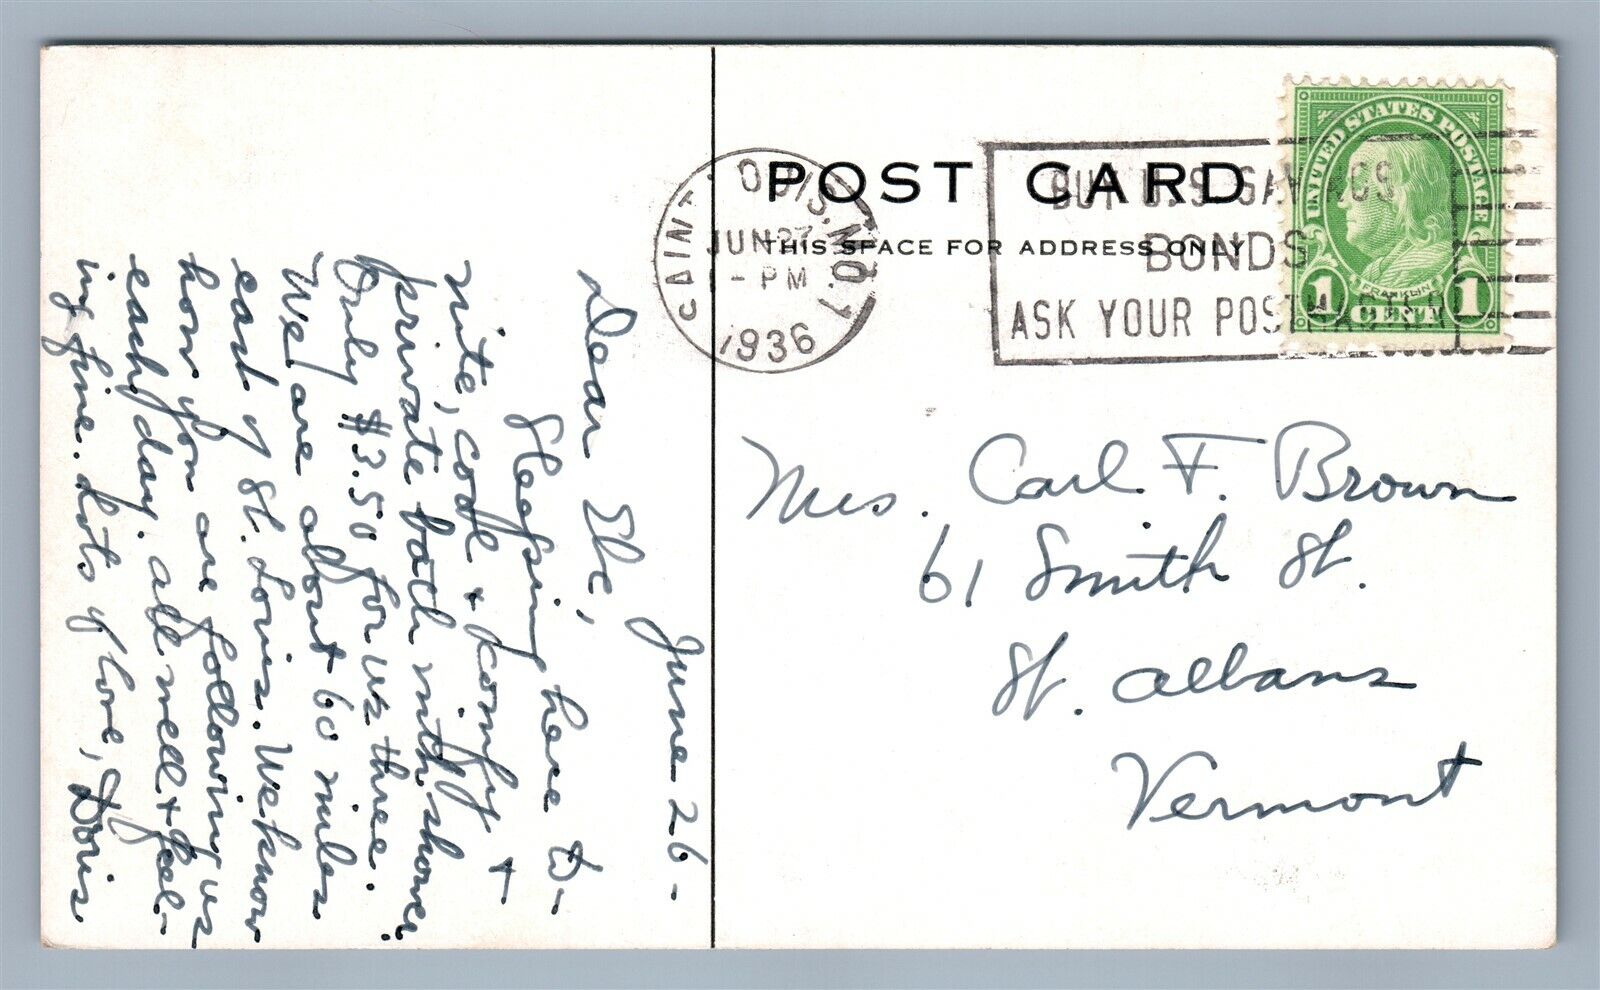 June 26 -
Dear Ebe,
Sleeping here to-
nite, cool & comfy &
private bath with shower.
Only $3.50 for us three.
We are about 60 miles
east of St. Louis. We know
how you are following us
each day. All well & feel-
ing fine. Lots of love, Doris
POST CARD
THIS SPACE FOR ADDRESS ONLY
SAINT LOUIS, MO. 1
JUN 27
PM
1936
BUY U.S. SAVINGS
BONDS
ASK YOUR POSTMASTER
UNITED STATES POSTAGE
FRANKLIN
1 CENT 1
Mrs. Carl F. Brown
61 Smith St.
St. Albans
Vermont